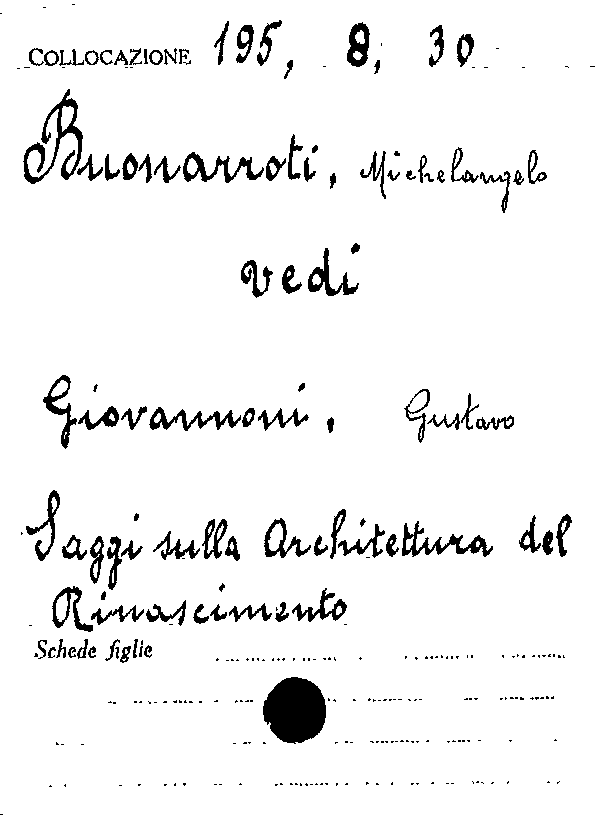 COLLOCAZIONE 195, 8, 30
Buonarroti, Michelangelo
vedi
Giovannoni, Gustavo
Saggi sulla Architettura del
Rinascimento
Schede figlie